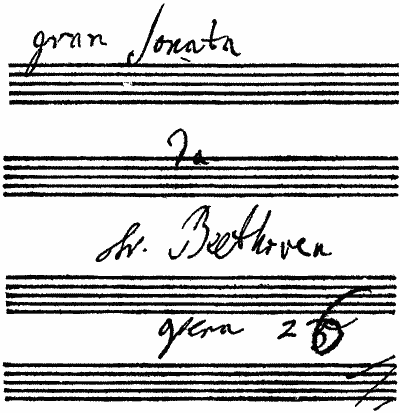 gran Sonata
Da
Beethoven
opera 26